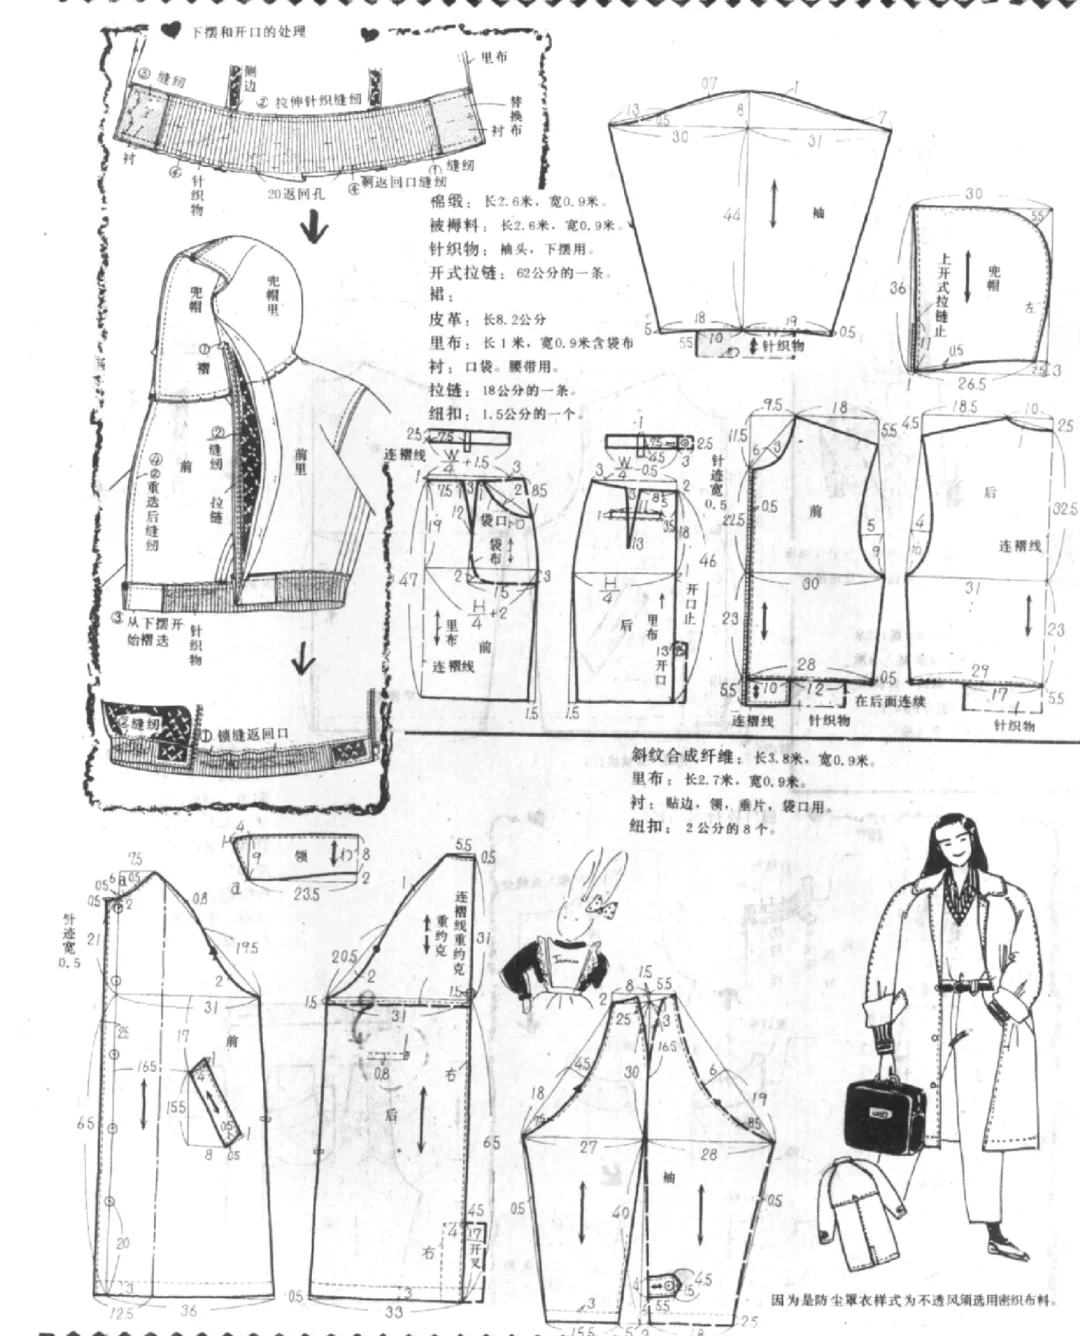 下摆和开口的处理
里布
③ 缝纫
侧边
② 拉伸针织缝纫
替换布
衬
衬
④
针织物
20返回孔
① 缝纫
兜帽
兜帽里
① 褶
② 缝纫
拉链
前
前里
④②重迭后缝纫
③ 从下摆开
始褶迭
针织物
② 缝纫
① 锁缝返回口
棉缎：长2.6米，宽0.9米。
被褥料：长2.6米，宽0.9米。
针织物：袖头，下摆用。
开式拉链：62公分的一条。
裙：
皮革：长8.2公分
里布：长1米，宽0.9米含袋布
衬：口袋。腰带用。
拉链：18公分的一条。
纽扣：1.5公分的一个。
07
1
13
0.5
8
7
30
31
44
袖
18
19
0.5
5.5
10
针织物
30
5.5
36
上开式拉链止
兜帽
左
11
0.5
2.5
3
1
26.5
2.5
7.5
连褶线
W/4+1.5
3
1
7.5
1
3
2
8.5
19
12
袋口
袋布
47
2
15
3
H/4+2
里布
前
连褶线
1.5
1
2.5
4.5
2.5
W/4-0.5
3
3
2
1
13
18
46
H/4
后
里布
开口止
13
开口
1.5
9.5
18
11.5
5.5
6
3
针迹宽
0.5
22.5
0.5
前
5
9
30
23
28
0.5
5.5
10
12
连褶线
针织物
在后面连续
18.5
10
4.5
2.5
后
32.5
4
10
连褶线
31
23
29
17
5.5
针织物
斜纹合成纤维：长3.8米，宽0.9米。
里布：长2.7米，宽0.9米。
衬：贴边，领，垂片，袋口用。
纽扣：2公分的8个。
4
9
领
8
a
23.5
2
7.5
0.5
6
a
0.5
0.5
2
0.8
针迹宽
0.5
21
19.5
2
31
前
17
25
16.5
15.5
65
8
0.5
20
3
12.5
36
5.5
0.5
1
连褶线重约克
重约克
31
20.5
2
1.5
1.5
31
0.8
右
后
65
4.5
4
17
开叉
右
0.5
3
33
8
1.5
5.5
2
1
2.5
3
16.5
4.5
30
6
18
19
7.5
8.5
27
28
袖
0.5
40
0.5
4
4.5
5.5
3
15.5
5
2
8
2.5
因为是防尘罩衣样式为不透风须选用密织布料。